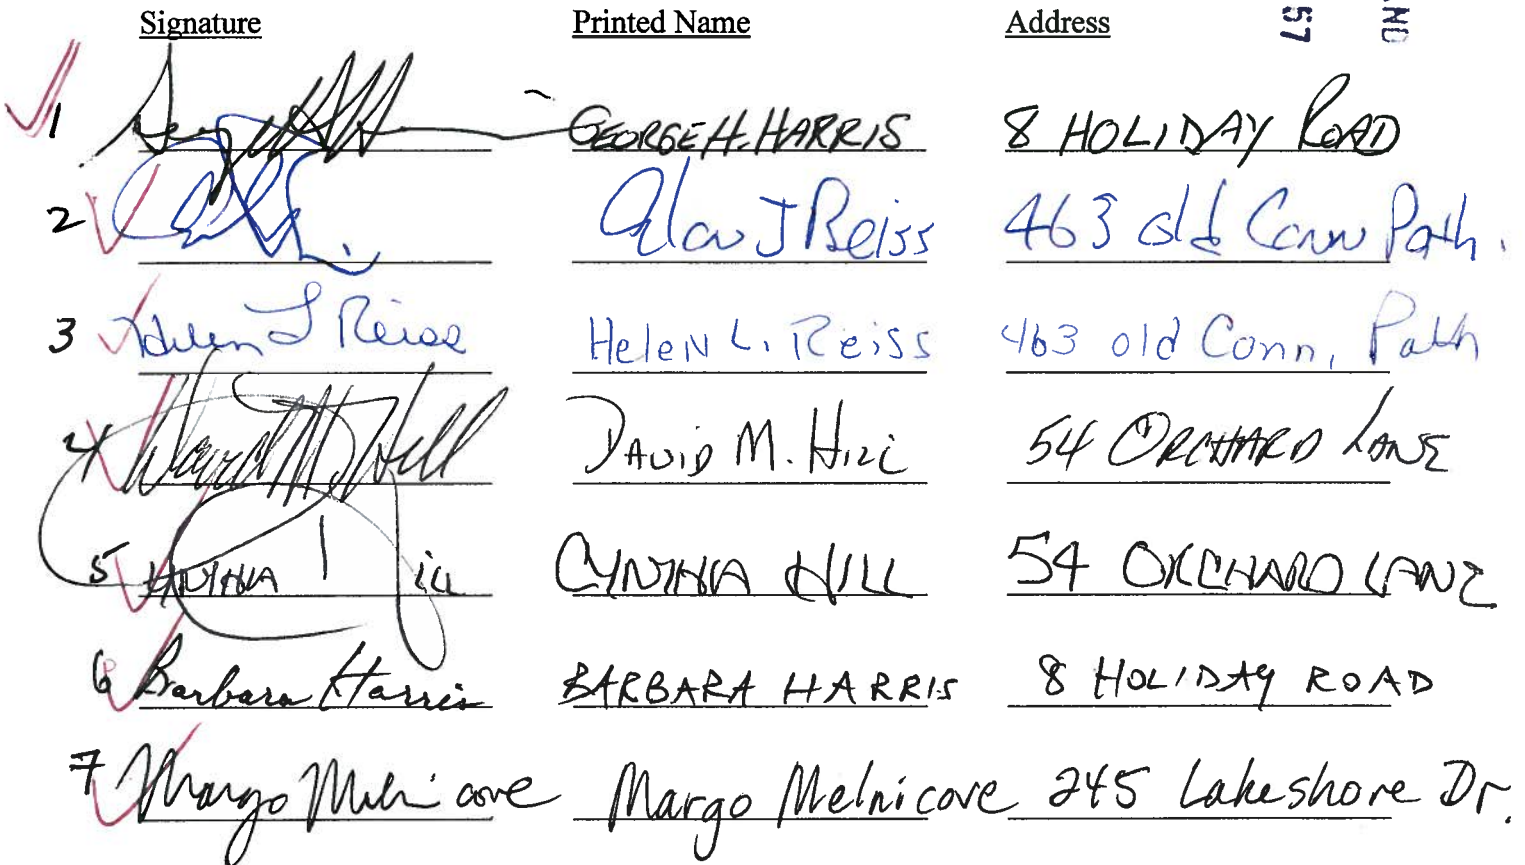 Signature Printed Name Address
57
1 GEORGE H. HARRIS 8 HOLIDAY ROAD
2 Alan J Reiss 463 old Conn Path.
3 Helen L Reiss Helen L. Reiss 463 old Conn. Path
4 David M. Hill DAVID M. HILL 54 ORCHARD LANE
5 CYNTHIA HILL 54 ORCHARD LANE
6 Barbara Harris BARBARA HARRIS 8 HOLIDAY ROAD
7 Margo Melnicove Margo Melnicove 245 Lakeshore Dr.